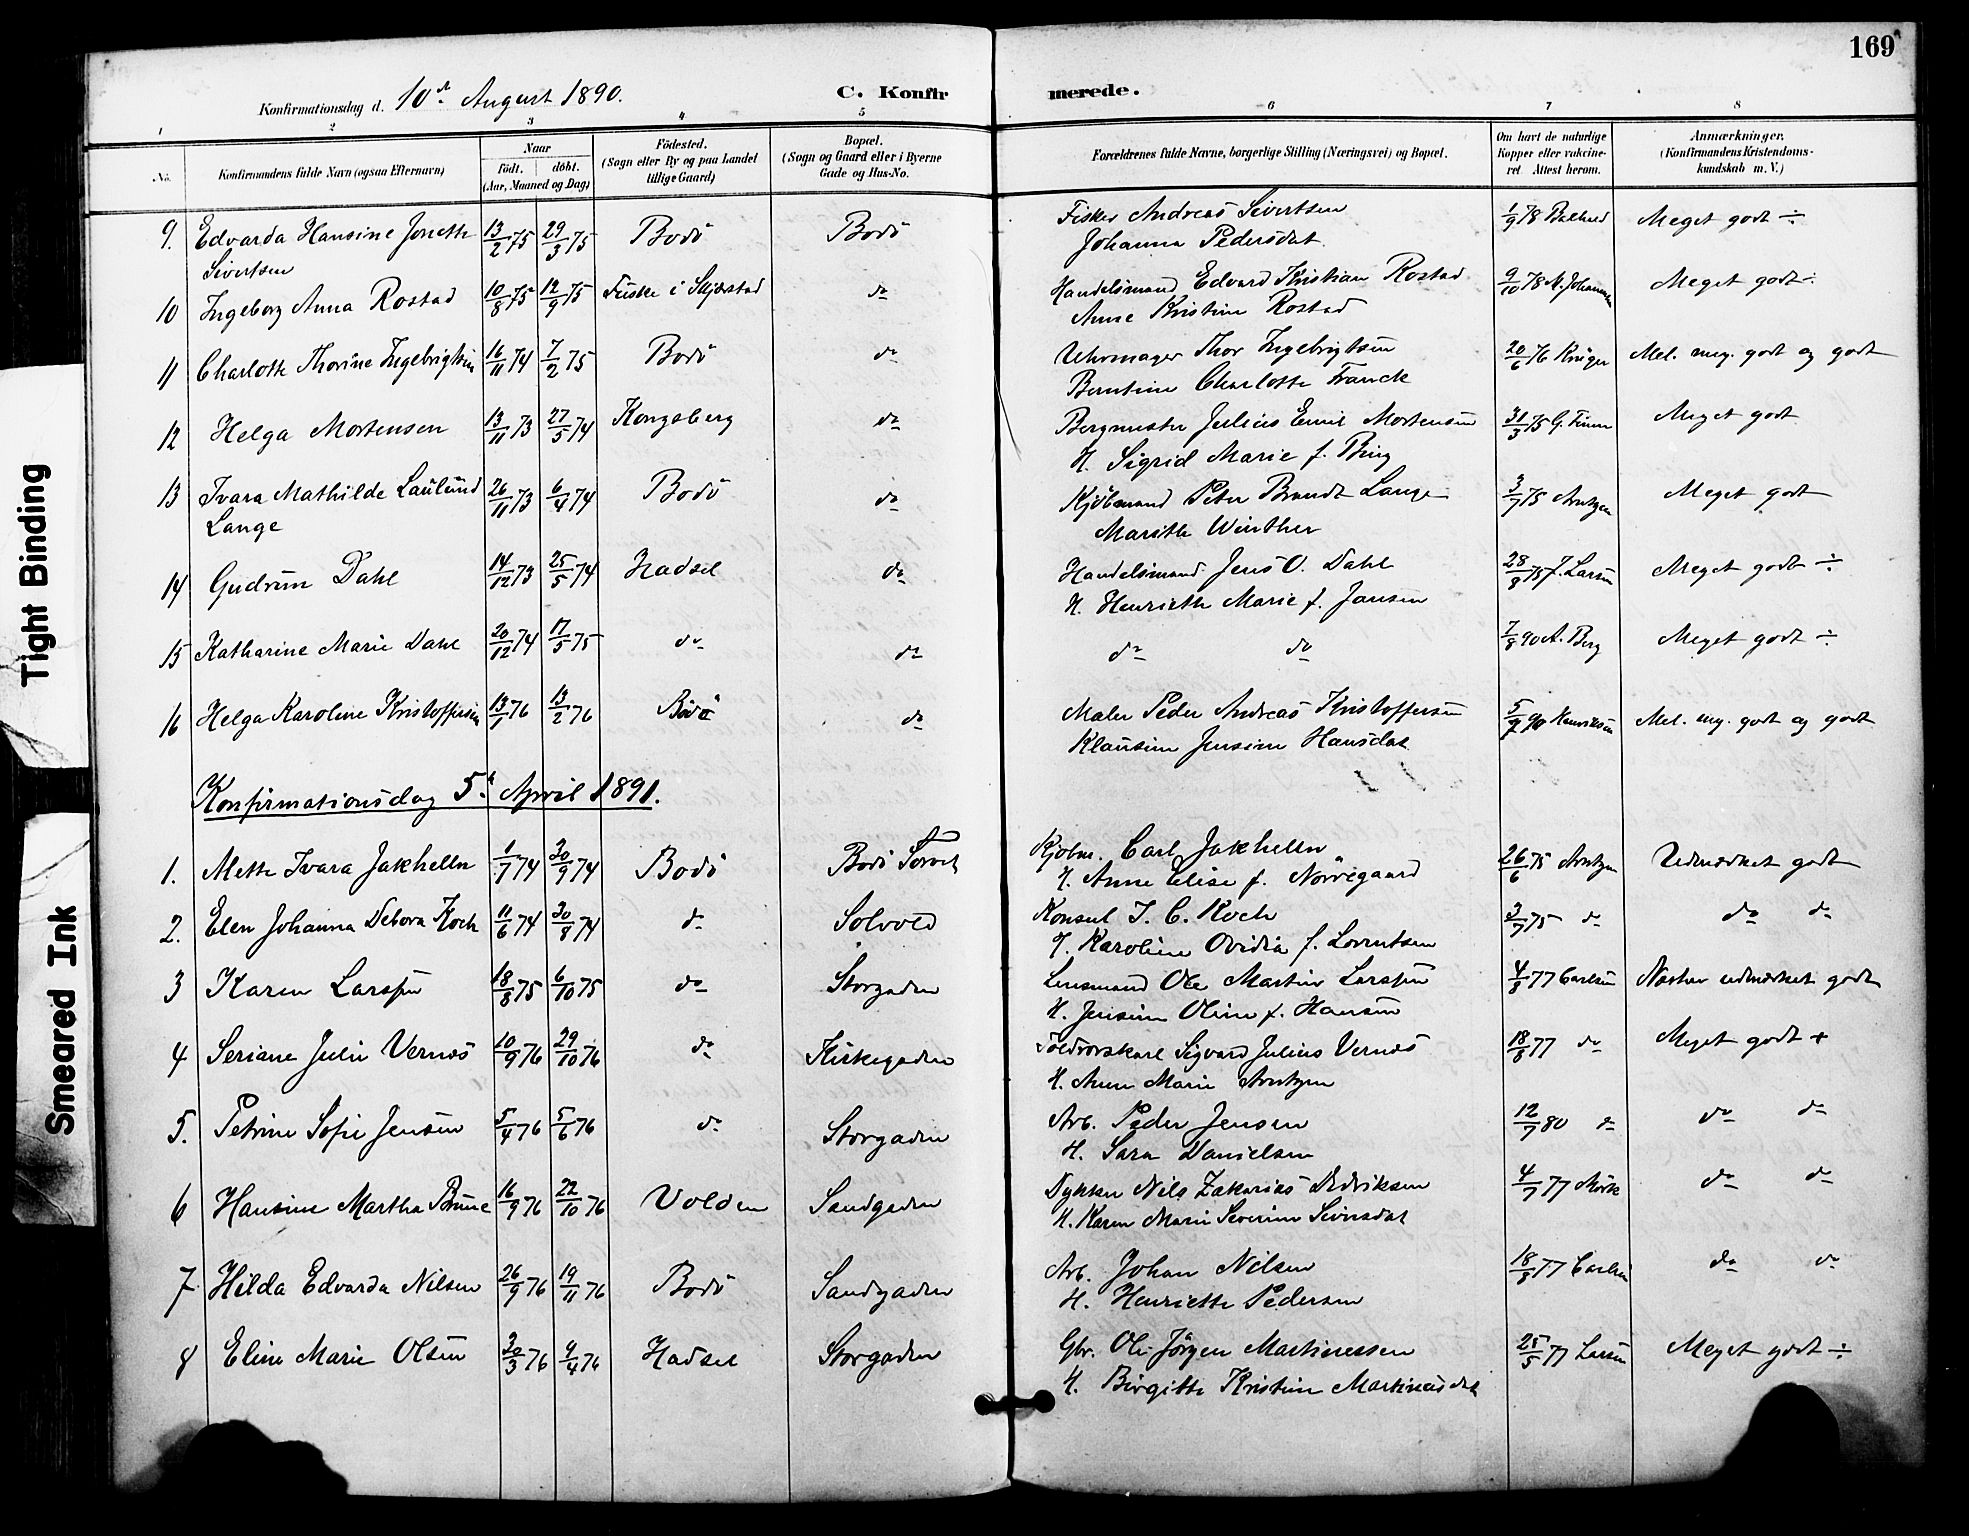 169
Konfirmationsdag d. 10de August 1890. C. Konfir merede.
1 2 3 4 5 6 7 8
No.
Konfirmandens fulde Navn (ogsaa Efternavn)
Naar
født. døbt.
(Aar, Maaned og Dag)
Fødested.
(Sogn eller By og paa Landet
tillige Gaard)
Bopæl.
(Sogn og Gaard eller i Byerne
Gade og Hus-No.
Forældrenes fulde Navne, borgerlige Stilling (Næringsvei) og Bopæl.
Om havt de naturlige
Kopper eller vakcine-
ret. Attest herom.
Anmærkninger.
(Konfirmandens Kristendoms-
kundskab m. V.)
9. Edvarda Hansine Jonette 13/2 75 29/3 75 Bodö Bodö Fisker Andreas Sivertsen 1/9 78 Meget godt ÷
Sivertsen Johanna Pedersdat.
10 Ingeborg Anna Rostad 10/8 75 12/9 75 Fuske i Skjerstad do Handelsmand Edvard Kristian Rostad 9/10 78 N. Johansen Meget godt ÷
Anne Kristine Rostad
11 Charlotte Thorine Ingebrigtsen 16/11 74 7/2 75 Bodö do Uhrmager Thor Ingebrigtsen 20/6 76 Krüger Mel. meg. godt og godt
Berntine Charlotte Franck
12 Helga Mortensen 13/11 73 27/5 74 Kongsberg do Bergmester Julius Emil Mortensen 31/3 75 G. Finne Meget godt
H. Sigrid Marie f. Bing
13 Ivara Mathilde Laulund 26/11 73 6/4 74 Bodö do Kjöbmand Peter Brandt Lange 3/7 75 Arntzen Meget godt
Lange Marithe Winther
14 Gudrun Dahl 14/12 73 25/5 74 Hadsel do Handelsmand Jens O. Dahl 28/8 75 J. Larsen Meget godt ÷
H. Henriette Marie f. Jansen
15 Katharine Marie Dahl 20/12 74 17/5 75 do do do do 7/8 90 A. Berg Meget godt ÷
16 Helga Karoline Kristoffersen 13/1 76 13/2 76 Bodö do Maler Peder Andreas Kristoffersen 5/7 90 Henriksen Mel. meg. godt og godt
Klausine Jensine Hansdat.
Konfirmationsdag 5te April 1891.
1. Mette Ivara Jakhelln 1/7 74 30/9 74 Bodö Bodö Torvet Kjöbm. Carl Jakhelln 26/6 75 Arntzen Udmærket godt
H. Anne Elise f. Norregaard
2. Elen Johanna Debora Koch 11/6 74 30/8 74 do Solvold Konsul J. C. Koch 3/7 75 do do do
H. Karoline Ovidia f. Lorentsen
3 Karen Larssen 18/8 75 6/10 75 do Storgaden Lensmand Ole Martin Larssen 4/8 77 Carlsen Næsten udmærket godt
H. Jensine Oline f. Hansen
4 Seriane Julie Vernæs 10/9 76 29/10 76 do Kirkegaden Toldvorskarl Sigvard Julius Vernæs 18/8 77 do Meget godt +
H. Anne Marie Arntzen
5. Petrine Sofie Jensen 5/4 76 5/6 76 do Storgaden Arb. Peder Jensen 12/7 80 do do do
H. Sara Danielsen
6 Hansine Martha Brune 16/9 76 22/10 76 Volden Sandgaden Dykker Nils Zakarias Dedriksen 4/7 77 Mörk do do
H. Karen Marie Severine Sivensdat
7 Hilda Edvarda Nilsen 26/9 76 19/11 76 Bodö Sandgaden Arb. Johan Nilsen 18/8 77 Carlsen do do
H. Henriette Pedersen
8 Eline Marie Olsen 30/3 76 9/4 76 Hadsel Storgaden Gbr. Ole Jörgen Martinessen 25/5 77 Larsen Meget godt ÷
H. Birgitte Kristine Martineusdat
Tight Binding
Smeared Ink